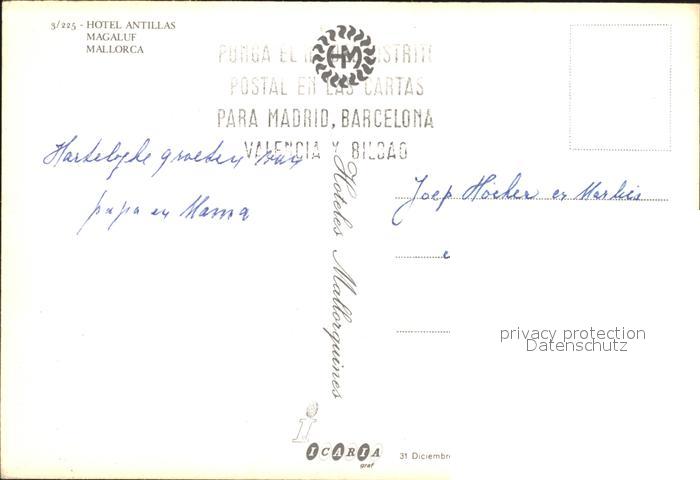 3/225 - HOTEL ANTILLAS
MAGALUF
MALLORCA
HM
PONGA EL DISTRITO
POSTAL EN LAS CARTAS
PARA MADRID, BARCELONA
VALENCIA Y BILBAO
Hartelijke groeten van
papa en Mama
Hoteles Mallorquines
Joep Höcker en
privacy protection
Datenschutz
i
ICARIA
graf
31 Diciembre